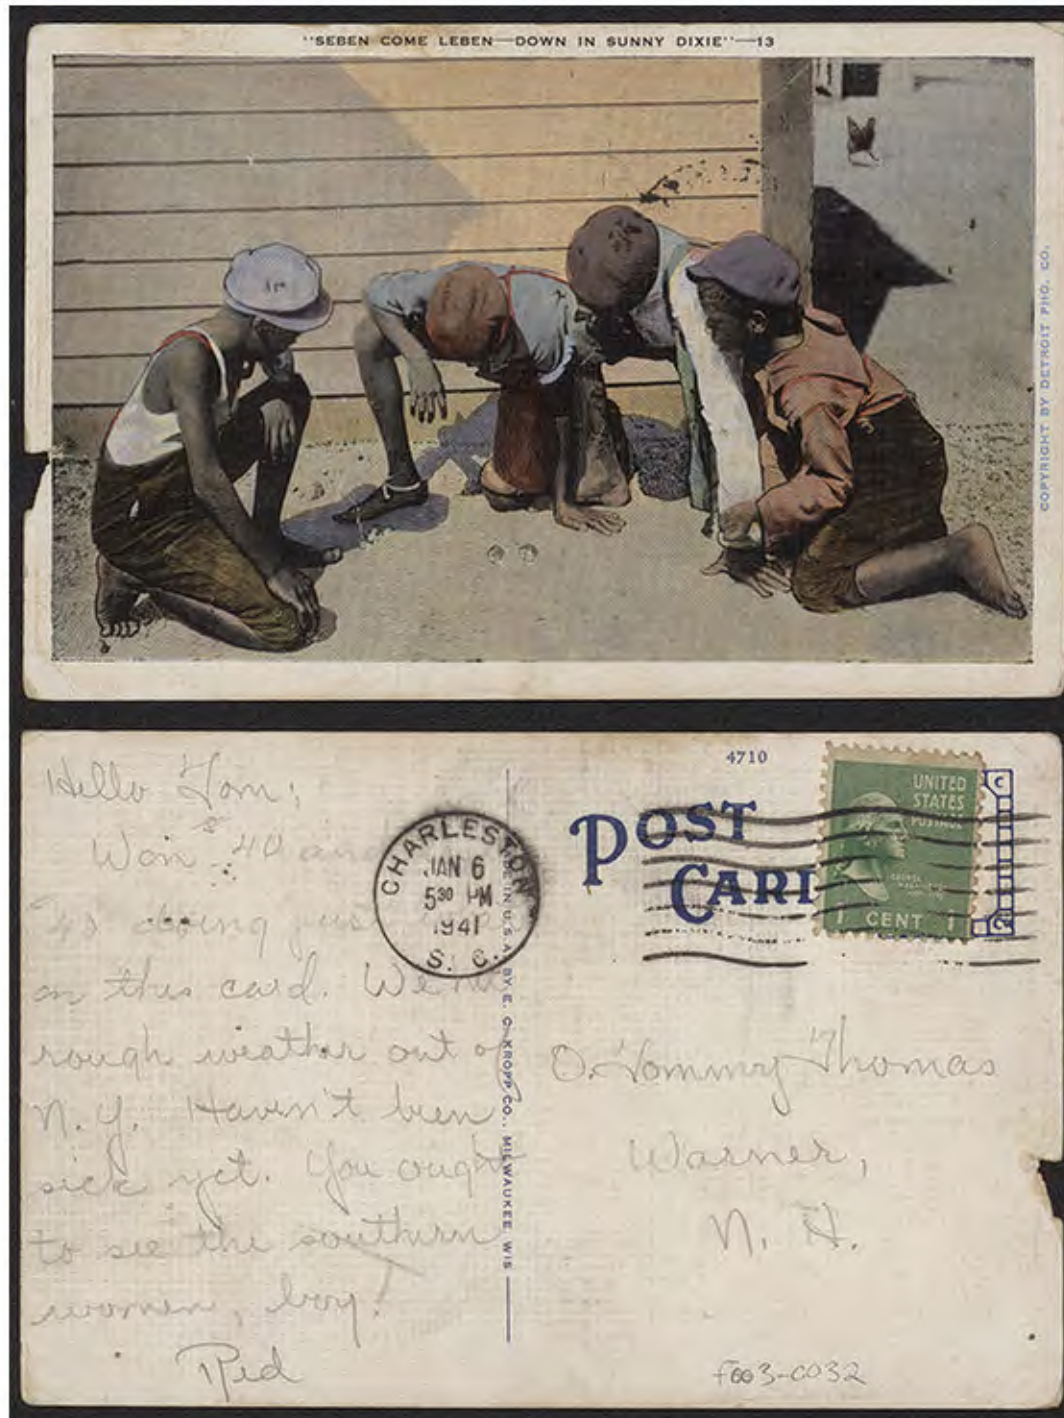 "SEBEN COME LEBEN—DOWN IN SUNNY DIXIE"—13
COPYRIGHT BY DETROIT PHO. CO.
Hello Tom:
Won $40 and
doing just
on this card. We hit
rough weather out of
N.Y. Haven't been
sick yet. You ought
to see the southern
women, boy!
Red
CHARLESTON
JAN 6
5 30 PM
1941
S. C.
MADE IN U.S.A. BY E. C. KROPP CO., MILWAUKEE, WIS
4710
POST
CARD
UNITED
STATES
POSTAGE
1 CENT 1
O. Tommy Thomas
Warner,
N. H.
F003-0032